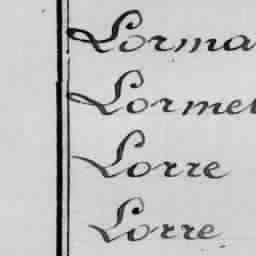 Lorma
Lormel
Lorre
Lorre